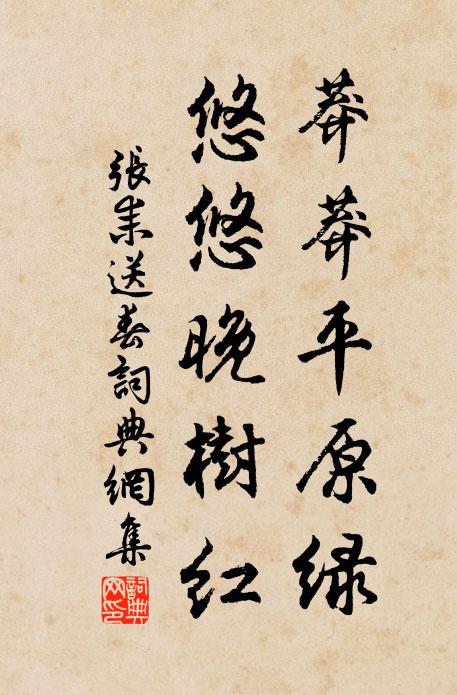 莽莽平原绿
悠悠晚樹红
張耒送春詞典網集
詞典
网印